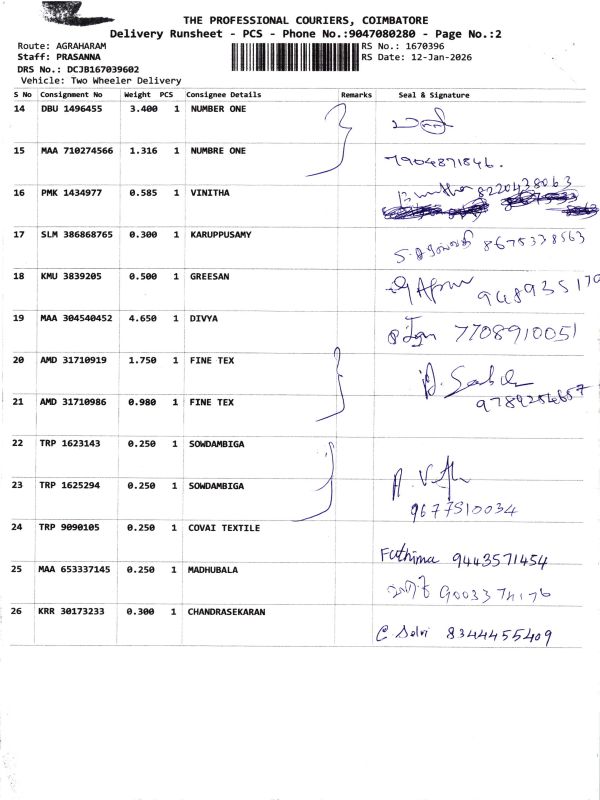 THE PROFESSIONAL COURIERS, COIMBATORE
Delivery Runsheet - PCS - Phone No.:9047080280 - Page No.:2
Route: AGRAHARAM RS No.: 1670396
Staff: PRASANNA RS Date: 12-Jan-2026
DRS No.: DCJB167039602
Vehicle: Two Wheeler Delivery
S No Consignment No Weight PCS Consignee Details Remarks Seal & Signature
14 DBU 1496455 3.400 1 NUMBER ONE
15 MAA 710274566 1.316 1 NUMBRE ONE
7904871846.
16 PMK 1434977 0.585 1 VINITHA
8220438063
17 SLM 386868765 0.300 1 KARUPPUSAMY
8675338563
18 KMU 3839205 0.500 1 GREESAN
948935170
19 MAA 304540452 4.650 1 DIVYA
7708910051
20 AMD 31710919 1.750 1 FINE TEX
21 AMD 31710986 0.980 1 FINE TEX
9789254657
22 TRP 1623143 0.250 1 SOWDAMBIGA
23 TRP 1625294 0.250 1 SOWDAMBIGA
9677510034
24 TRP 9090105 0.250 1 COVAI TEXTILE
Fathima 9443571454
25 MAA 653337145 0.250 1 MADHUBALA
26 KRR 30173233 0.300 1 CHANDRASEKARAN
C Selvi 8344455409